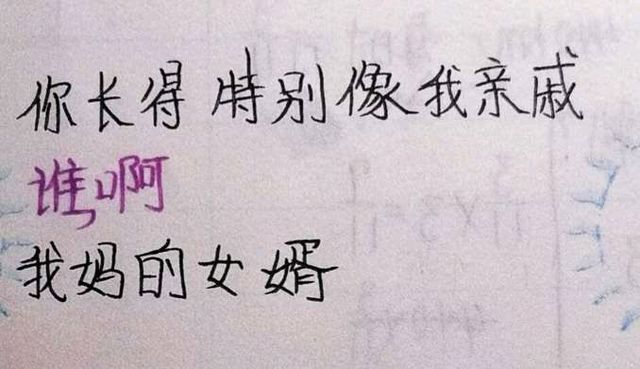 你长得特别像我亲戚
谁啊
我妈的女婿